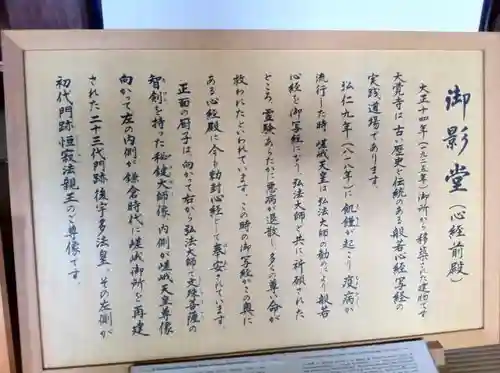 御影堂（心経前殿）
大正十四年（一九二五年）御所から移築された建物です
大覚寺は古い歴史と伝統のある般若心経写経の
実践道場であります。
弘仁九年（八一八年）に飢饉が起こり疫病が
流行した時嵯峨天皇は弘法大師の勧めにより般若
心経を御写経になり、弘法大師と共に祈願された
ところ、霊験あらたかに悪病が退散し、多くの尊い命が
救われたといわれています。この時の御写経がこの奥に
ある心経殿に今も勅封心経として奉安されています。
正面の厨子は、向かって右から弘法大師で文殊菩薩の
智剣を持った秘鍵大師像、内側が嵯峨天皇尊像
向かって左の内側が鎌倉時代に嵯峨御所を再建
された二十三代門跡後宇多法皇、その左側が
初代門跡恒寂法親王のご尊像です。